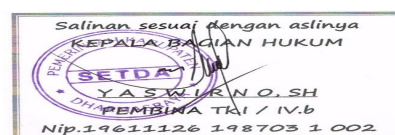 Salinan sesuai dengan aslinya
KEPALA BAGIAN HUKUM
SETDA
Y A S W I R N O, SH
PEMBINA TKI / IV.b
Nip.19611126 198703 1 002